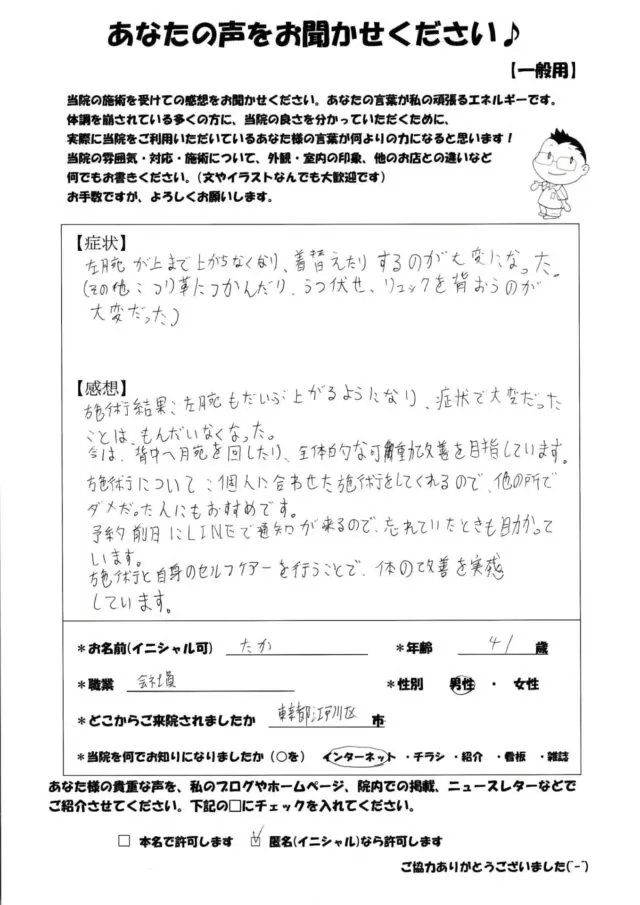 あなたの声をお聞かせください♪
【一般用】
当院の施術を受けての感想をお聞かせください。あなたの言葉が私の頑張るエネルギーです。
体調を崩されている多くの方に、当院の良さを分かっていただくために、
実際に当院をご利用いただいているあなた様の言葉が何よりの力になると思います！
当院の雰囲気・対応・施術について、外観・室内の印象、他のお店との違いなど
何でもお書きください。(文やイラストなんでも大歓迎です)
お手数ですが、よろしくお願いします。
【症状】
左腕が上まで上がらなくなり、着替えたりするのが大変になった。
(その他:つり革につかんだり、うつ伏せ、リュックを背おうのが
大変だった)
【感想】
施術結果:左腕もだいぶ上がるようになり、症状で大変だった
ことは、もんだいなくなった。
今は、背中へ腕を回したり、全体的な可動改善を目指しています。
施術について:個人に合わせた施術をしてくれるので、他の所で
ダメだった人にもおすすめです。
予約前日にLINEで通知が来るので、忘れていたときも助かって
います。
施術と自身のセルフケアーを行うことで、体の改善を実感
しています。
*お名前(イニシャル可) たか *年齢 41 歳
*職業 会社員 *性別 男性 ・ 女性
*どこからご来院されましたか 東京都江戸川区 市
*当院を何でお知りになりましたか (○を) インターネット ・チラシ ・紹介 ・看板 ・雑誌
あなた様の貴重な声を、私のブログやホームページ、院内での掲載、ニュースレターなどで
ご紹介させてください。下記の□にチェックを入れてください。
□ 本名で許可します ☑ 匿名(イニシャル)なら許可します
ご協力ありがとうございました(^-^)